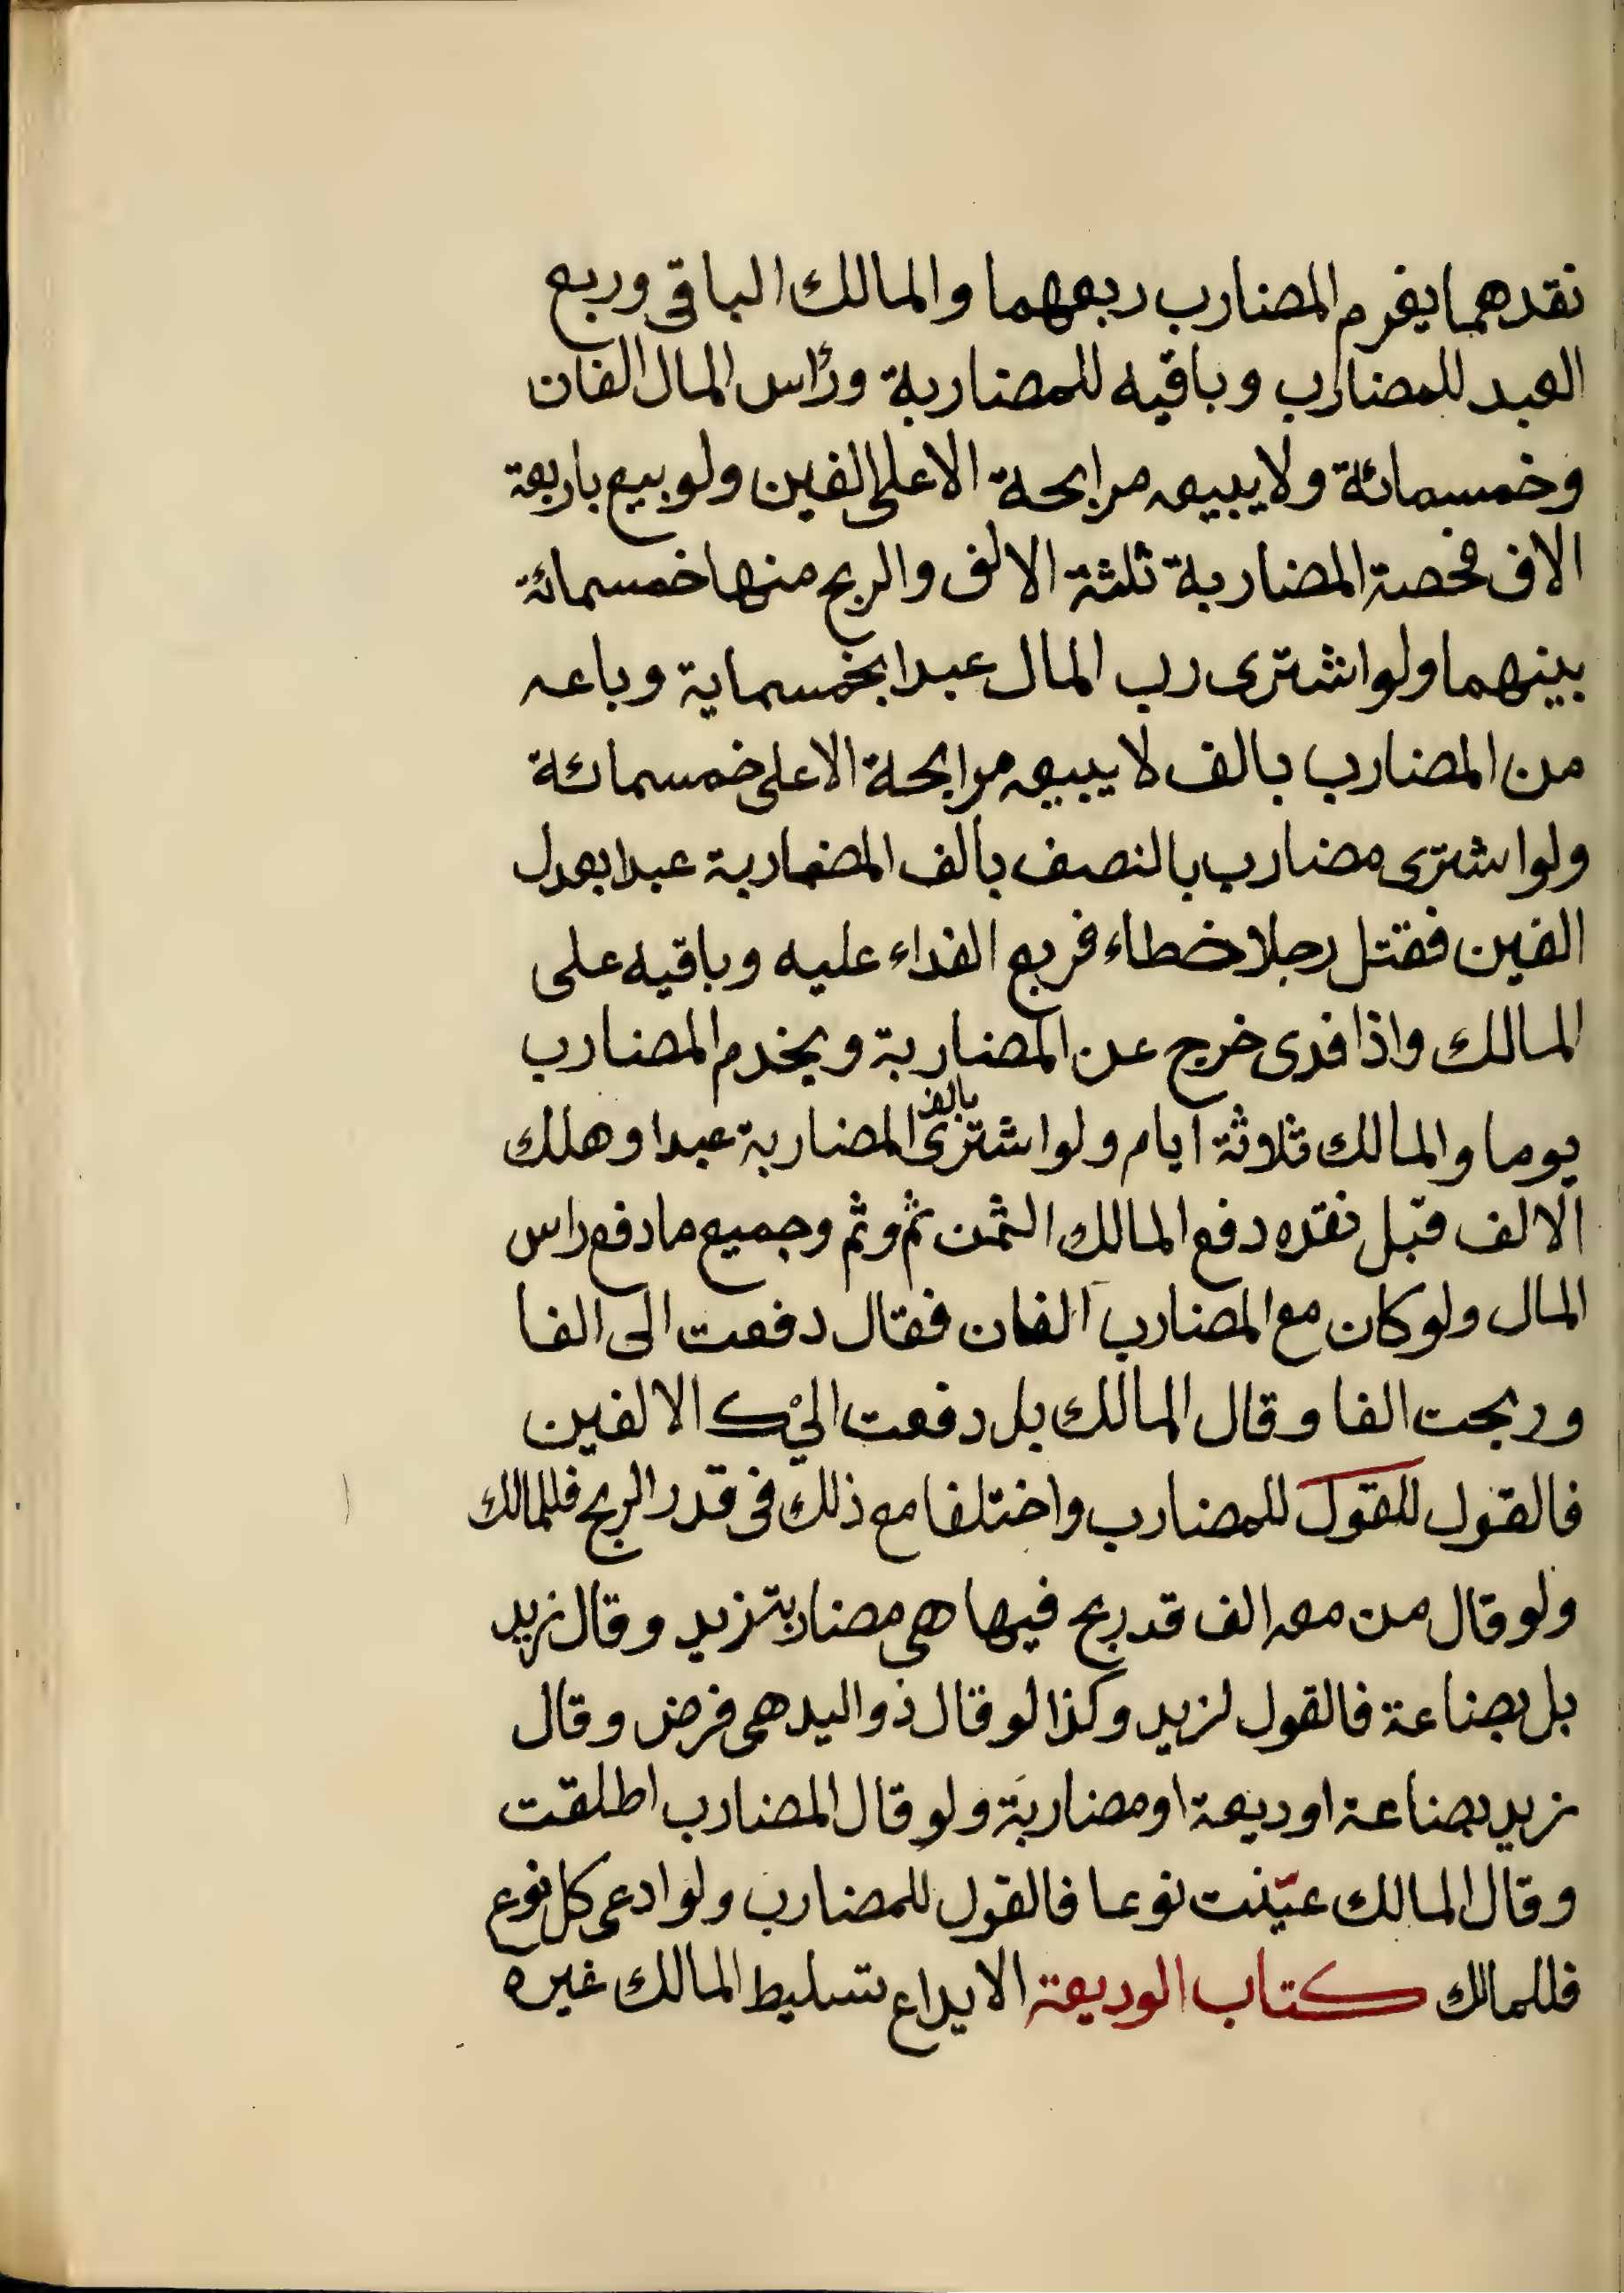 نقدهما يغرم المضارب ربعهما والمالك الباقى وربع
العبد للمضارب وباقيه للمضاربة ورأس المال الفان
وخمسمائة ولا يبيعه مرابحة الا على الفين ولو بيع باربعة
الاف فحصة المضاربة ثلثة الالف والربح منها خمسمائة
بينهما ولو اشترى رب المال عبدا بخمسماية وباعه
من المضارب بالف لا يبيعه مرابحة الا على خمسمائة
ولو اشترى مضارب بالنصف بالف المضاربة عبدا يعدل
الفين فقتل رجلا خطاء فربع الفداء عليه وباقيه على
المالك واذا فدى خرج عن المضاربة ويخدم المضارب
يوما والمالك ثلاثة ايام ولو اشترى بالف المضاربة عبدا وهلك
الالف قبل نقده دفع المالك الثمن ثم وثم وجميع ما دفع راس
المال ولو كان مع المضارب الفان فقال دفعت الى الفا
وربحت الفا وقال المالك بل دفعت اليك الالفين
فالقول للقول للمضارب واختلفا مع ذلك فى قدر الربح فللمالك
ولو قال من معه الف قد ربح فيها هى مضاربة زيد وقال زيد
بل بضاعة فالقول لزيد وكذا لو قال ذو اليد هى قرض وقال
زيد بضاعة او ديعة او مضاربة ولو قال المضارب اطلقت
وقال المالك عيّنت نوعا فالقول للمضارب ولو ادعى كل نوع
فللمالك كتاب الوديعة الايداع تسليط المالك غيره